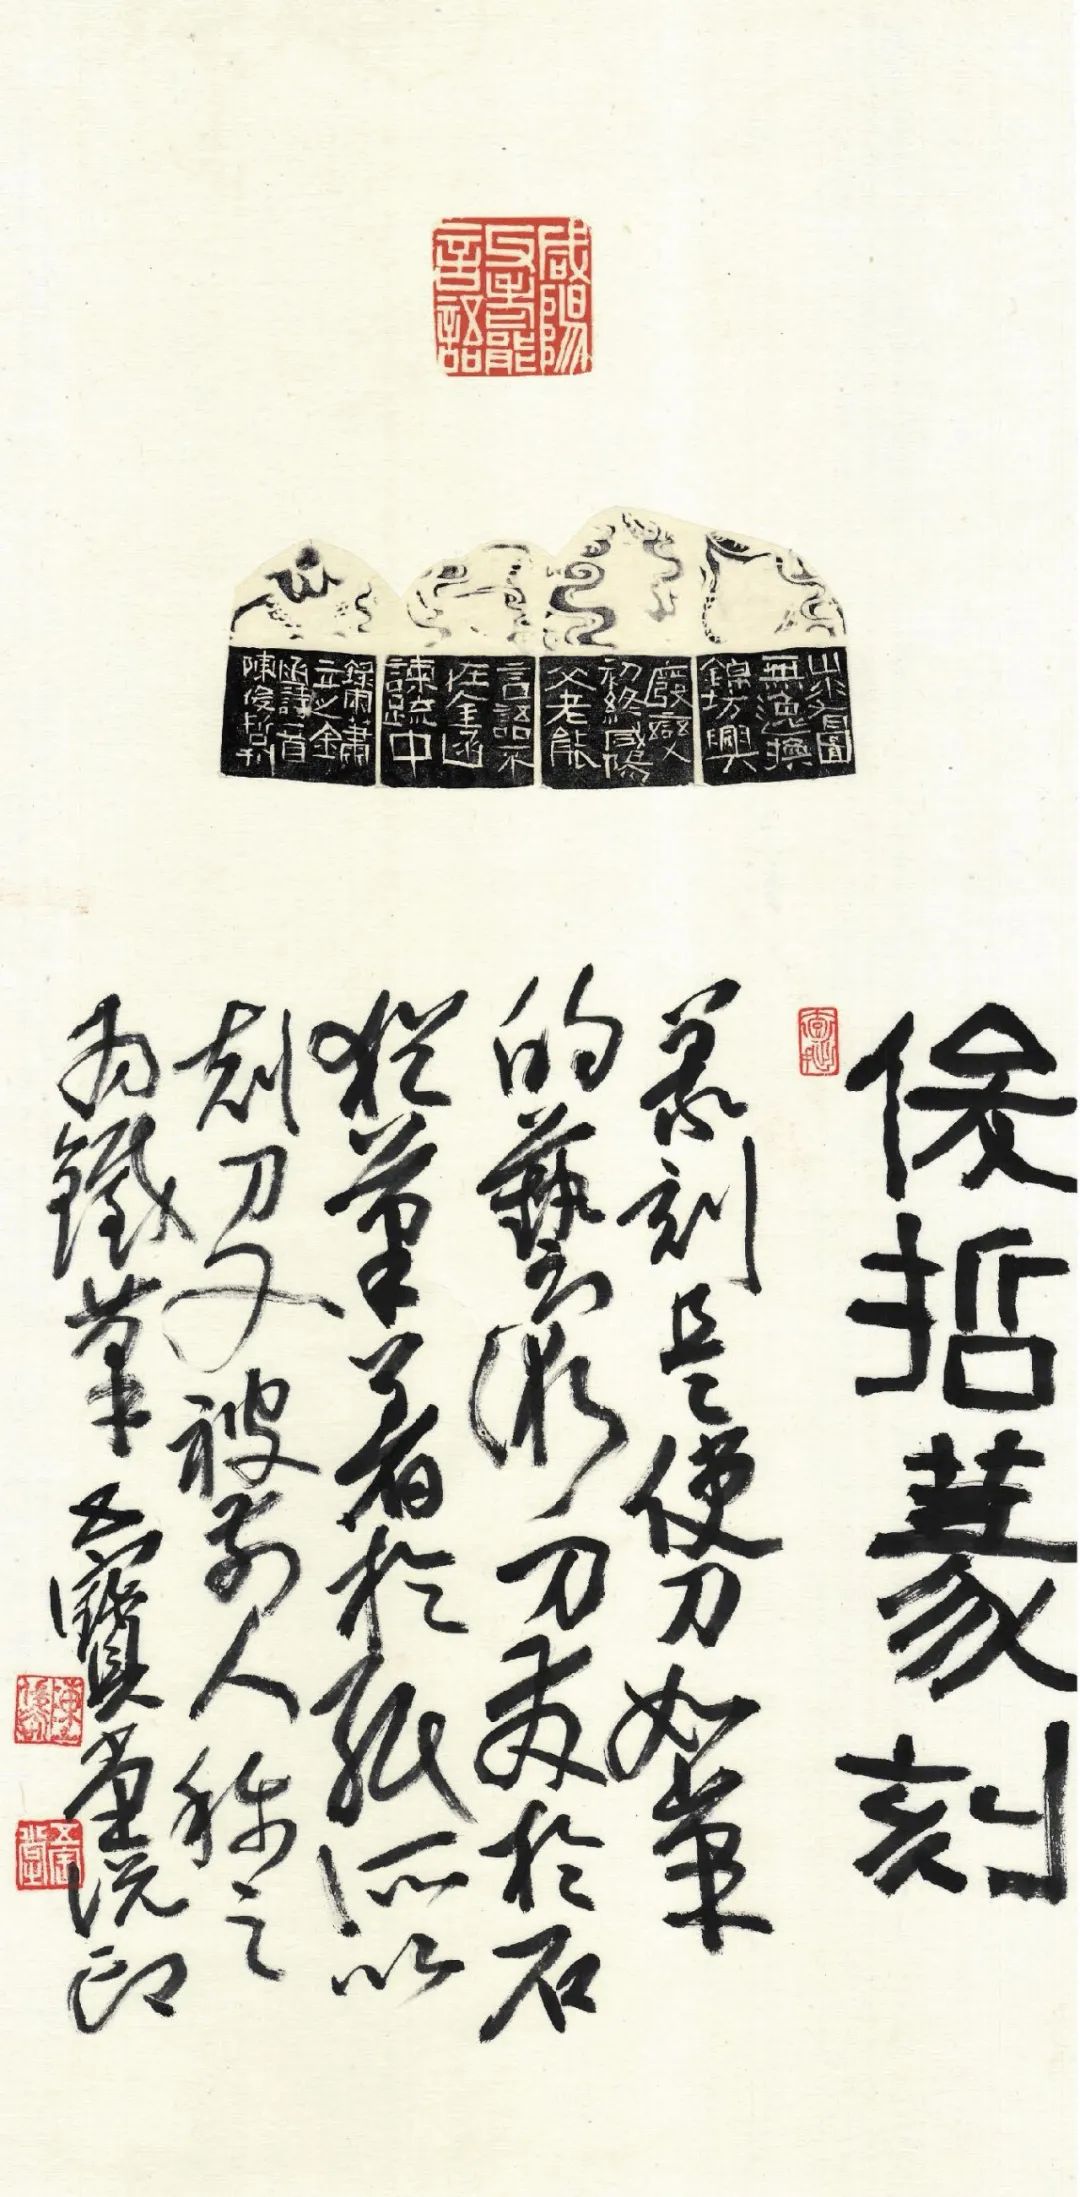 咸陽
父老能
言語
山水圖
無逸換
錦坊興
廢
初終咸陽
父老能
言語不
在金函
諫疏中
錄宋蕭
立之金
函詩一首
陳俊哲刊
俊哲篆刻
篆刻是使刀如筆
的藝術刀於石
猶筆著於紙所以
刻刀又被前人稱之
為鐵筆五寶堂説印
陳俊哲
五寶堂